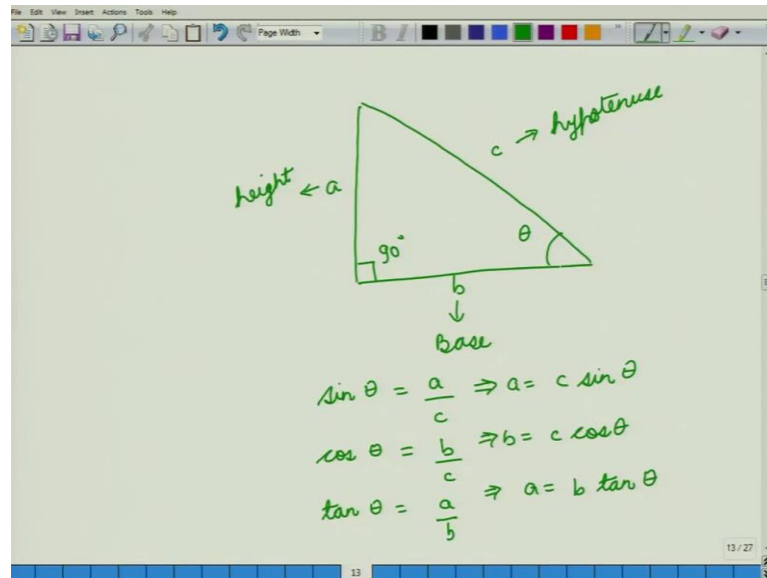 File Edit View Insert Actions Tools Help
Page Width
B I
c → hypotenuse
height ← a
θ
90°
b
↓
Base
sin θ = a/c ⇒ a = c sin θ
cos θ = b/c ⇒ b = c cos θ
tan θ = a/b ⇒ a = b tan θ
13 / 27
13